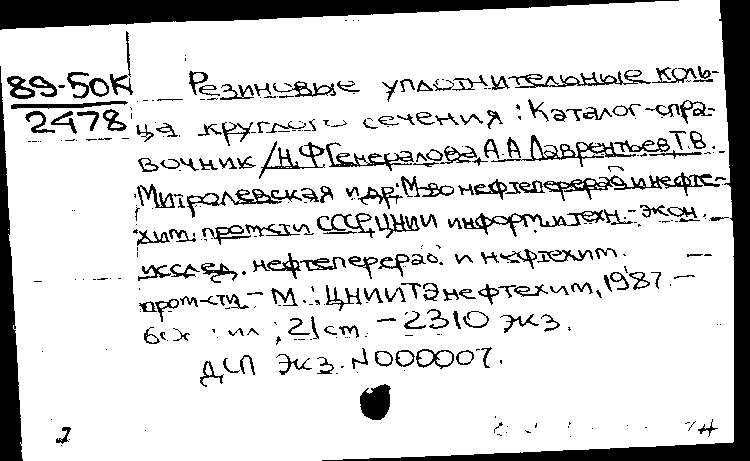 89-50К
2478
Резиновые уплотнительные коль-
ца круглого сечения : Каталог-спра-
вочник / Н.Ф Генералова, А.А Лаврентьев, Т.В.
Митролевская и др; М-во нефтеперераб и нефте-
хим. пром-сти СССР, ЦНИИ информ. и техн.-экон.
исслед. нефтеперераб. и нефтехим.
пром-сти. - М. : ЦНИИТЭнефтехим, 1987. -
60с : ил ; 21 см. - 2310 экз.
ДСП Экз. N000007.